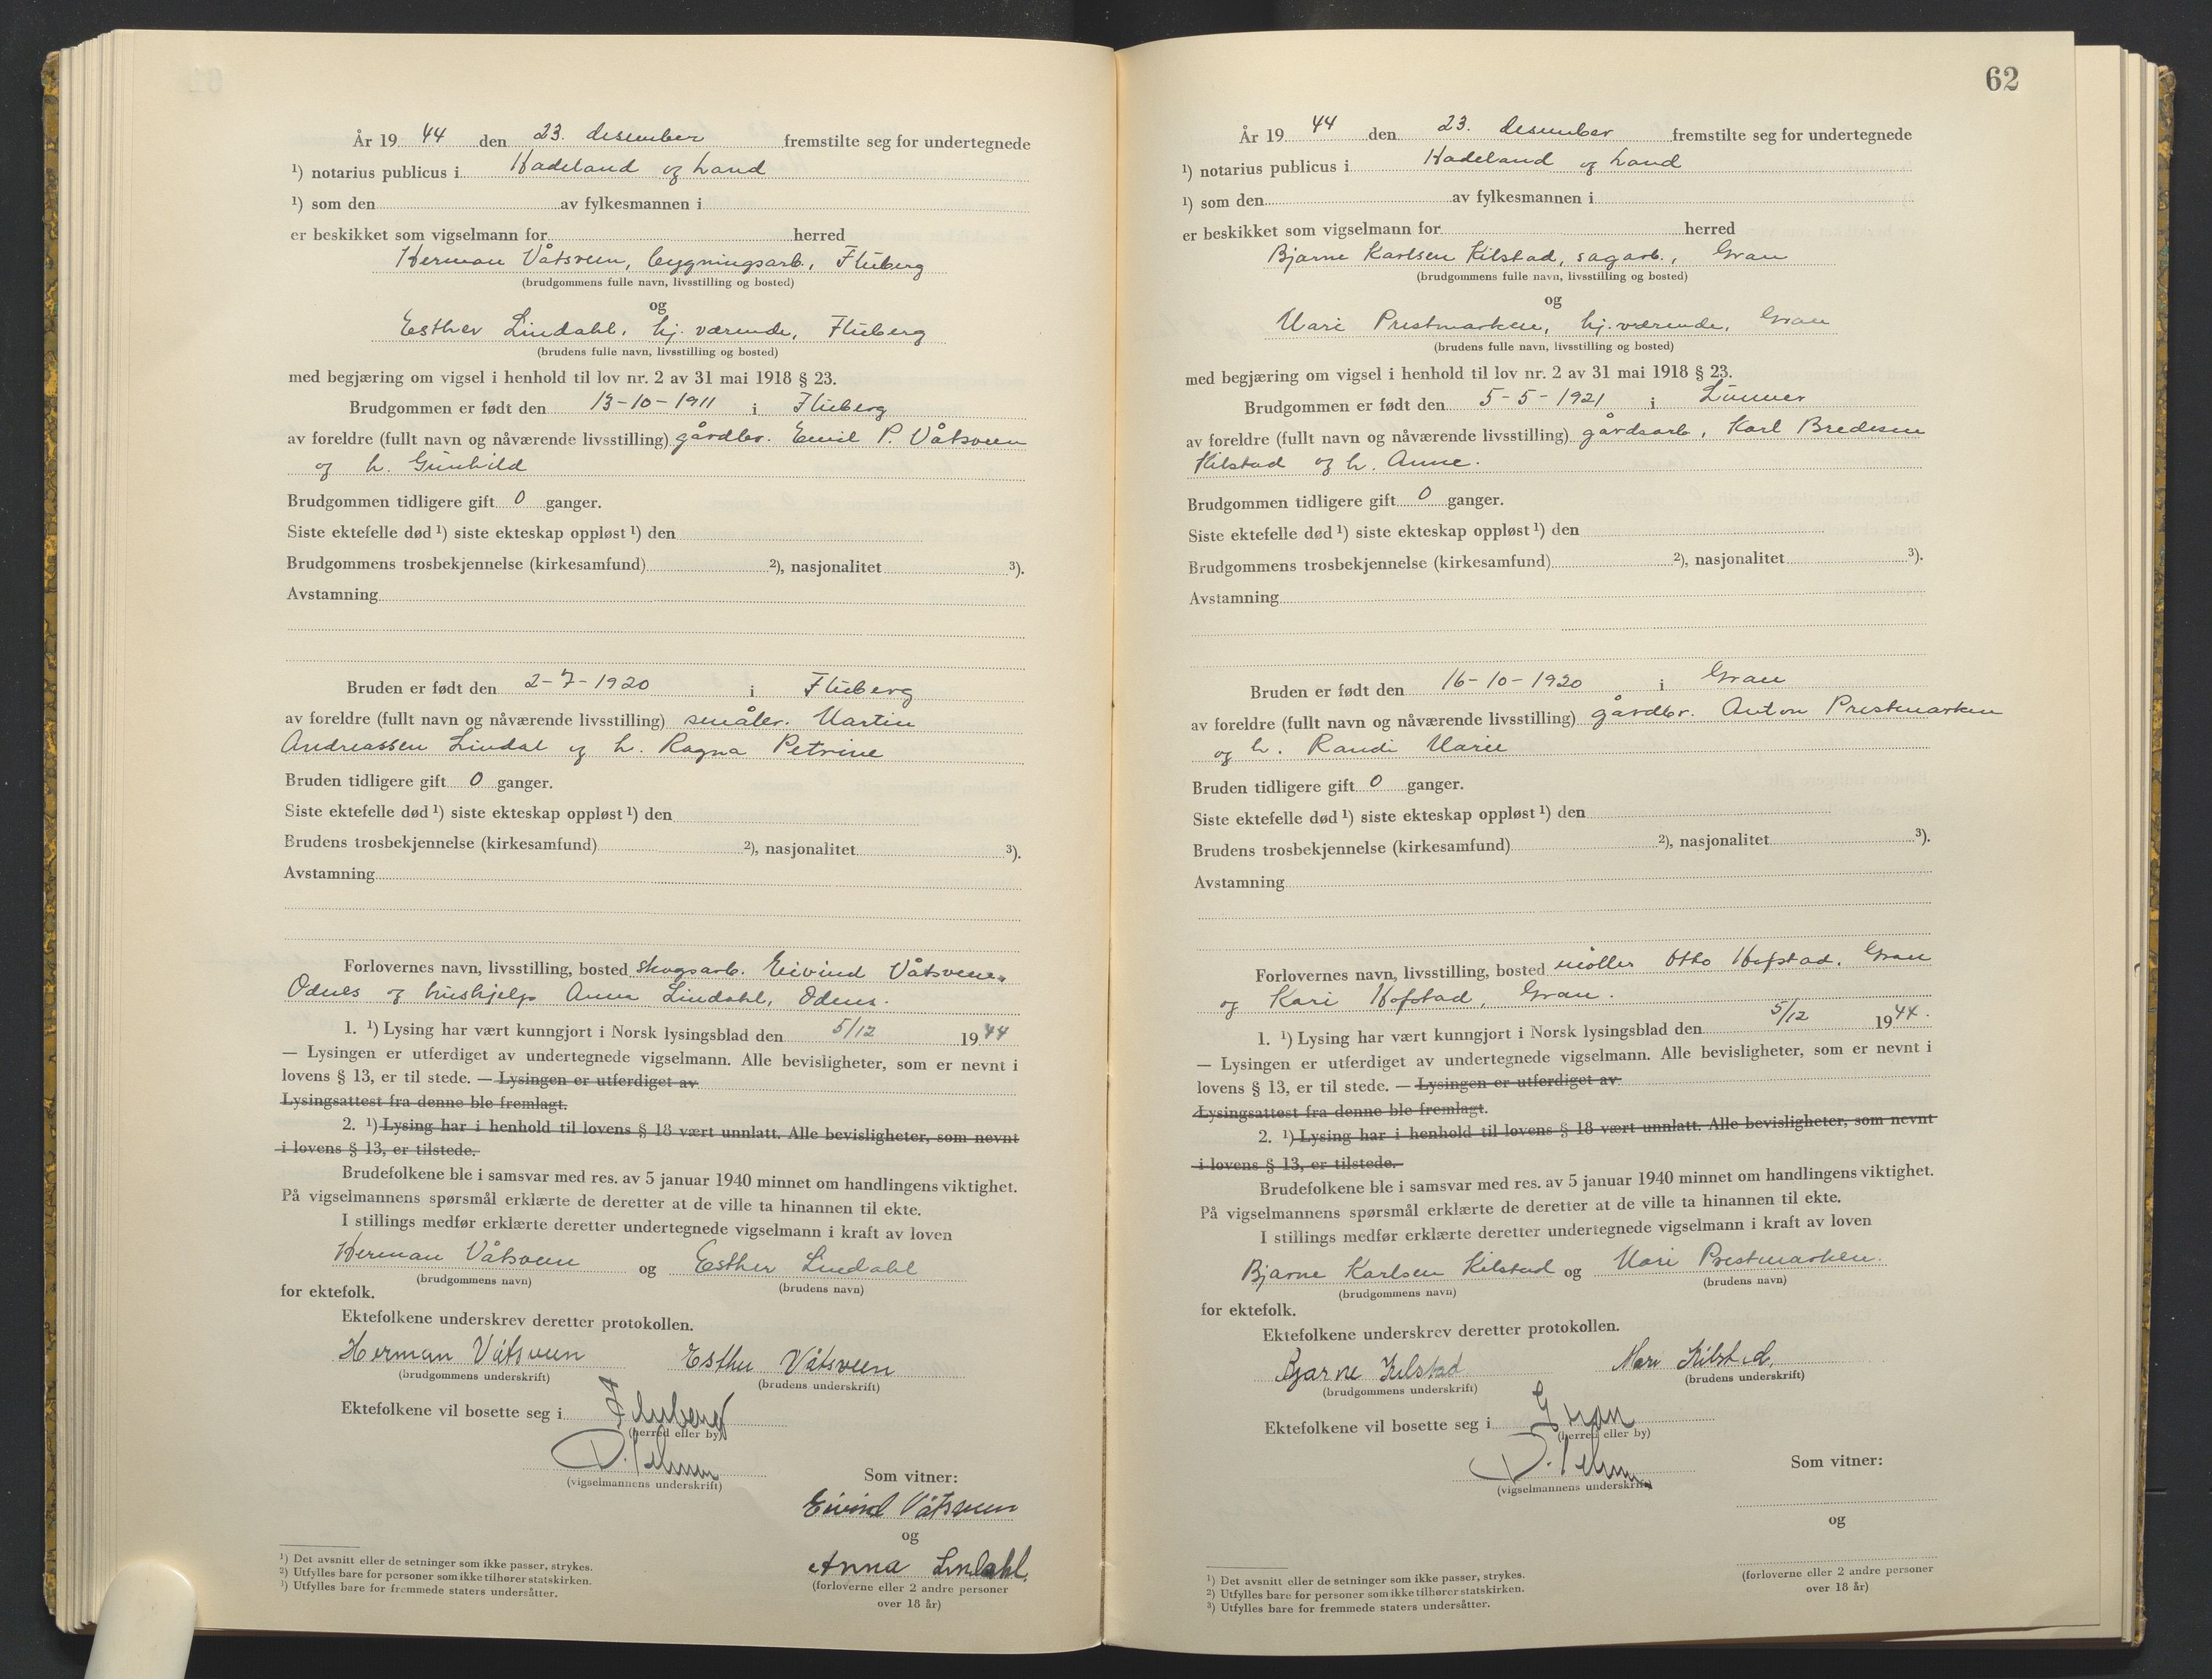 År 19 44 den 23. desember fremstilte seg for undertegnede
¹) notarius publicus i Hadeland og Land
¹) som den av fylkesmannen i
er beskikket som vigselmann for herred
Herman Våtsveen, bygningsarb., Fluberg
(brudgommens fulle navn, livsstilling og bosted)
og
Esther Lindahl, hj. værende, Fluberg
(brudens fulle navn, livsstilling og bosted)
med begjæring om vigsel i henhold til lov nr. 2 av 31 mai 1918 § 23.
Brudgommen er født den 13-10-1911 i Fluberg
av foreldre (fullt navn og nåværende livsstilling) gårdbr. Emil P. Våtsveen
og h. Gunhild
Brudgommen tidligere gift 0 ganger.
Siste ektefelle død ¹) siste ekteskap oppløst ¹) den
Brudgommens trosbekjennelse (kirkesamfund) ²), nasjonalitet ³).
Avstamning
Bruden er født den 2-7-1920 i Fluberg
av foreldre (fullt navn og nåværende livsstilling) småbr. Martin
Andreassen Lindal og h. Ragna Petrine
Bruden tidligere gift 0 ganger.
Siste ektefelle død ¹) siste ekteskap oppløst ¹) den
Brudens trosbekjennelse (kirkesamfund) ²), nasjonalitet ³).
Avstamning
Forlovernes navn, livsstilling, bosted skogsarb. Eivind Våtsveen,
Odnes og hushjelp Anna Lindahl, Odnes.
1. ¹) Lysing har vært kunngjort i Norsk lysingsblad den 5/12 19 44
— Lysingen er utferdiget av undertegnede vigselmann. Alle bevisligheter, som er nevnt i
lovens § 13, er til stede. — Lysingen er utferdiget av
Lysingsattest fra denne ble fremlagt.
2. ¹) Lysing har i henhold til lovens § 18 vært unnlatt. Alle bevisligheter, som nevnt
i lovens § 13, er tilstede.
Brudefolkene ble i samsvar med res. av 5 januar 1940 minnet om handlingens viktighet.
På vigselmannens spørsmål erklærte de deretter at de ville ta hinannen til ekte.
I stillings medfør erklærte deretter undertegnede vigselmann i kraft av loven
Herman Våtsveen og Esther Lindahl
(brudgommens navn) (brudens navn)
for ektefolk.
Ektefolkene underskrev deretter protokollen.
Herman Våtsveen Esther Våtsveen
(brudgommens underskrift) (brudens underskrift)
Ektefolkene vil bosette seg i Fluberg
(herred eller by)
(vigselmannens underskrift)
Som vitner:
Eivind Våtsveen
og
Anna Lindahl.
(forloverne eller 2 andre personer
over 18 år)
¹) Det avsnitt eller de setninger som ikke passer, strykes.
²) Utfylles bare for personer som ikke tilhører statskirken.
³) Utfylles bare for fremmede staters undersåtter.
62
År 19 44 den 23. desember fremstilte seg for undertegnede
¹) notarius publicus i Hadeland og Land
¹) som den av fylkesmannen i
er beskikket som vigselmann for herred
Bjarne Karlsen Kilstad, sagarb., Gran
(brudgommens fulle navn, livsstilling og bosted)
og
Mari Prestmarken, hj. værende, Gran
(brudens fulle navn, livsstilling og bosted)
med begjæring om vigsel i henhold til lov nr. 2 av 31 mai 1918 § 23.
Brudgommen er født den 5-5-1921 i Lunner
av foreldre (fullt navn og nåværende livsstilling) gårdsarb, Karl Bredesen
Kilstad og h. Anne.
Brudgommen tidligere gift 0 ganger.
Siste ektefelle død ¹) siste ekteskap oppløst ¹) den
Brudgommens trosbekjennelse (kirkesamfund) ²), nasjonalitet ³).
Avstamning
Bruden er født den 16-10-1920 i Gran
av foreldre (fullt navn og nåværende livsstilling) gårdbr. Anton Prestmarken
og h. Randi Marie
Bruden tidligere gift 0 ganger.
Siste ektefelle død ¹) siste ekteskap oppløst ¹) den
Brudens trosbekjennelse (kirkesamfund) ²), nasjonalitet ³).
Avstamning
Forlovernes navn, livsstilling, bosted møller Otto Hofstad, Gran
og Kari Hofstad, Gran.
1. ¹) Lysing har vært kunngjort i Norsk lysingsblad den 5/12 19 44.
— Lysingen er utferdiget av undertegnede vigselmann. Alle bevisligheter, som er nevnt i
lovens § 13, er til stede. — Lysingen er utferdiget av
Lysingsattest fra denne ble fremlagt.
2. ¹) Lysing har i henhold til lovens § 18 vært unnlatt. Alle bevisligheter, som nevnt
i lovens § 13, er tilstede.
Brudefolkene ble i samsvar med res. av 5 januar 1940 minnet om handlingens viktighet.
På vigselmannens spørsmål erklærte de deretter at de ville ta hinannen til ekte.
I stillings medfør erklærte deretter undertegnede vigselmann i kraft av loven
Bjarne Karlsen Kilstad og Mari Prestmarken.
(brudgommens navn) (brudens navn)
for ektefolk.
Ektefolkene underskrev deretter protokollen.
Bjarne Kilstad Mari Kilstad.
(brudgommens underskrift) (brudens underskrift)
Ektefolkene vil bosette seg i Gran
(herred eller by)
(vigselmannens underskrift)
Som vitner:
og
(forloverne eller 2 andre personer
over 18 år)
¹) Det avsnitt eller de setninger som ikke passer, strykes.
²) Utfylles bare for personer som ikke tilhører statskirken.
³) Utfylles bare for fremmede staters undersåtter.